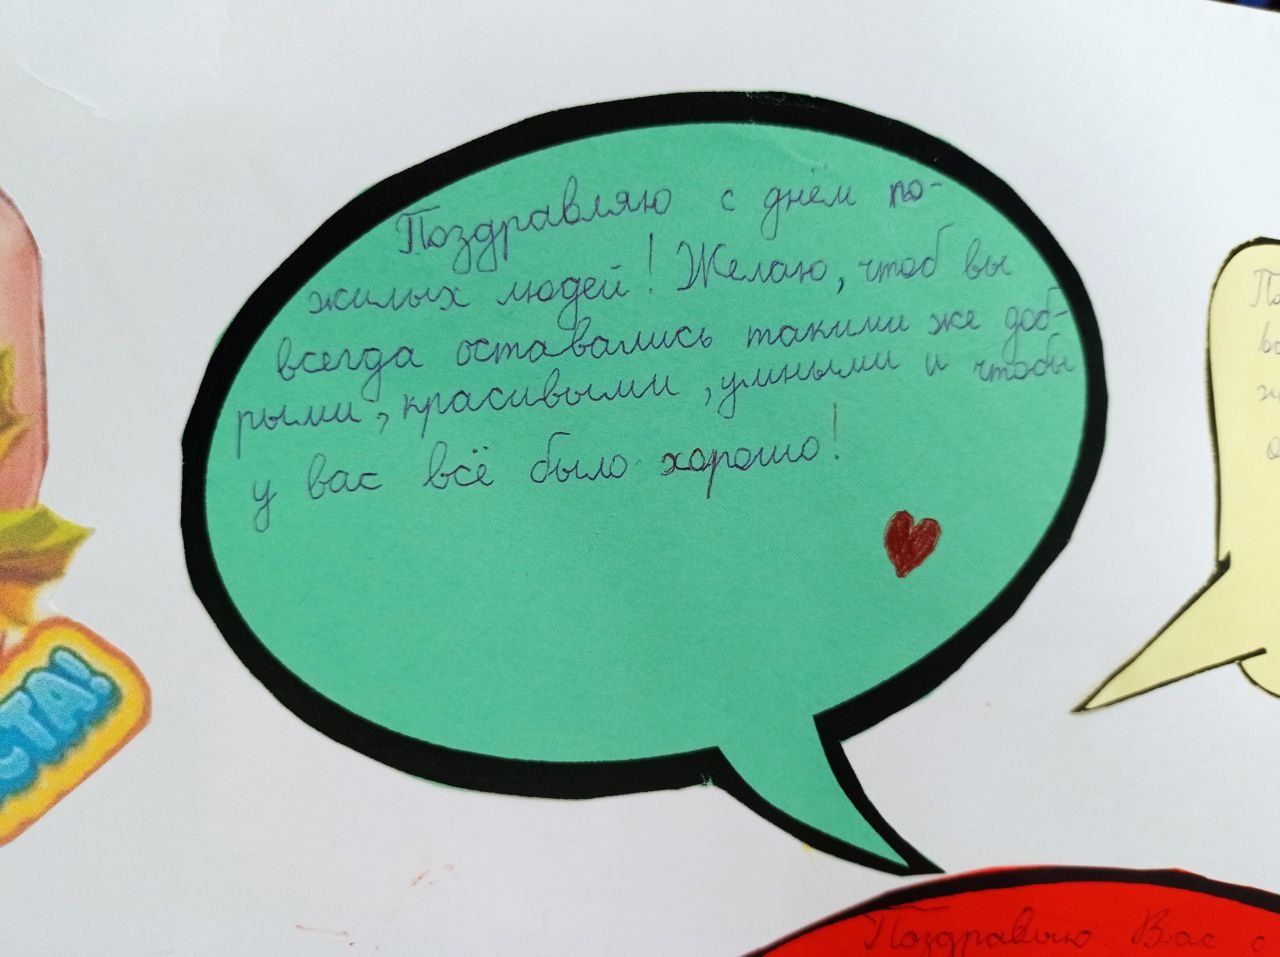 Поздравляю с днём по-
жилых людей! Желаю, чтоб вы
всегда оставались такими же доб-
рыми, красивыми, умными и чтобы
у вас всё было хорошо!
СТА!
Поздравляю Вас с